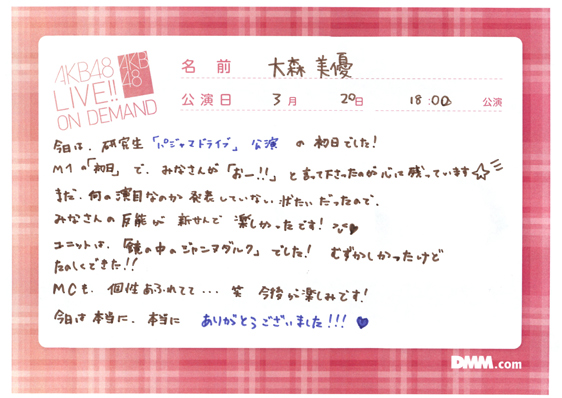 AKB48
LIVE!!
ON DEMAND
AKB
48
名 前 大森 美優
公演日 3月 20日 18:00 公演
今日は、研究生「パジャマドライブ」公演 の 初日でした!
M1の「初日」で、みなさんが「おー!!」と言って下さったのが心に残っています☆
まだ、何の演目なのか発表していない状たいだったので、
みなさんの反能が 新せんで 楽しかったです!
ユニットは、「鏡の中のジャンヌダルク」でした! むずかしかったけど
たのしくできた!!
MCも、個性あふれてて... 笑 今後が楽しみです!
今日は本当に、本当に ありがとうございました!!! ♥
DMM.com